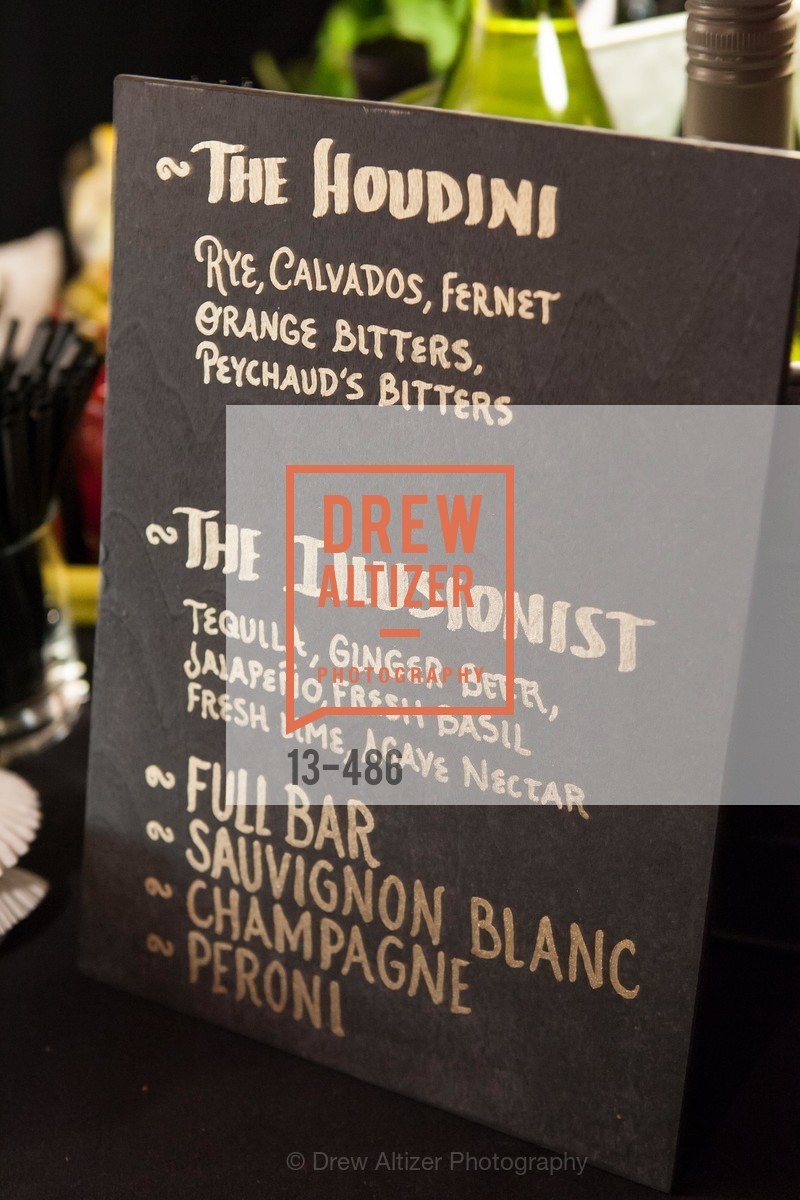 ~ THE HOUDINI
RYE, CALVADOS, FERNET
ORANGE BITTERS,
PEYCHAUD'S BITTERS
~ THE ILLUSIONIST
TEQUILA, GINGER BEER,
JALAPEÑO, FRESH BASIL
FRESH LIME, AGAVE NECTAR
~ FULL BAR
~ SAUVIGNON BLANC
~ CHAMPAGNE
~ PERONI
DREW
ALTIZER
PHOTOGRAPHY
13-486
© Drew Altizer Photography